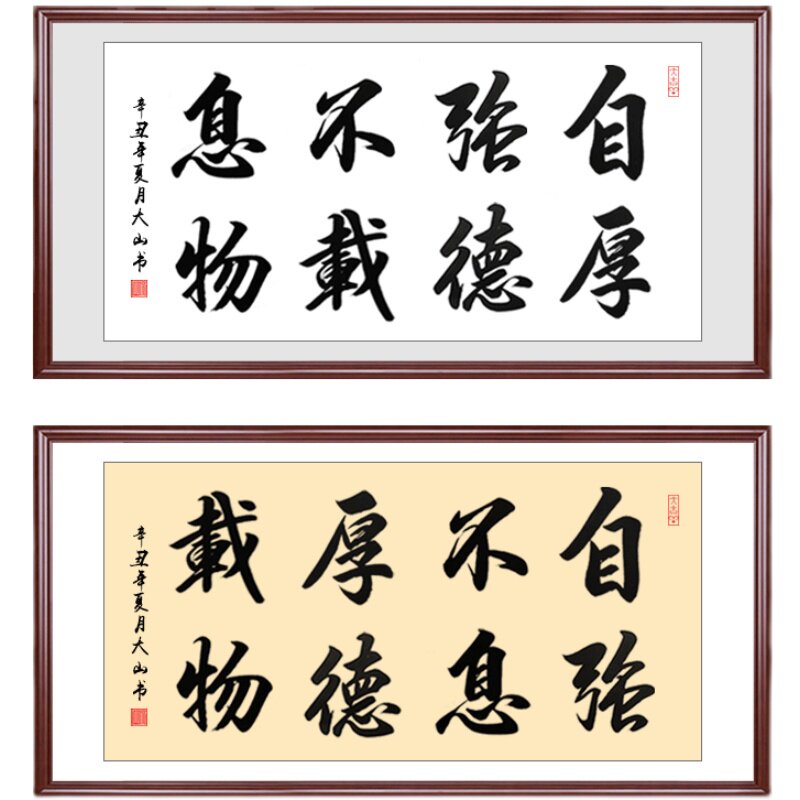 自強不息
厚德載物
辛丑年夏月大山书
自強
不息
厚德
載物
辛丑年夏月大山书